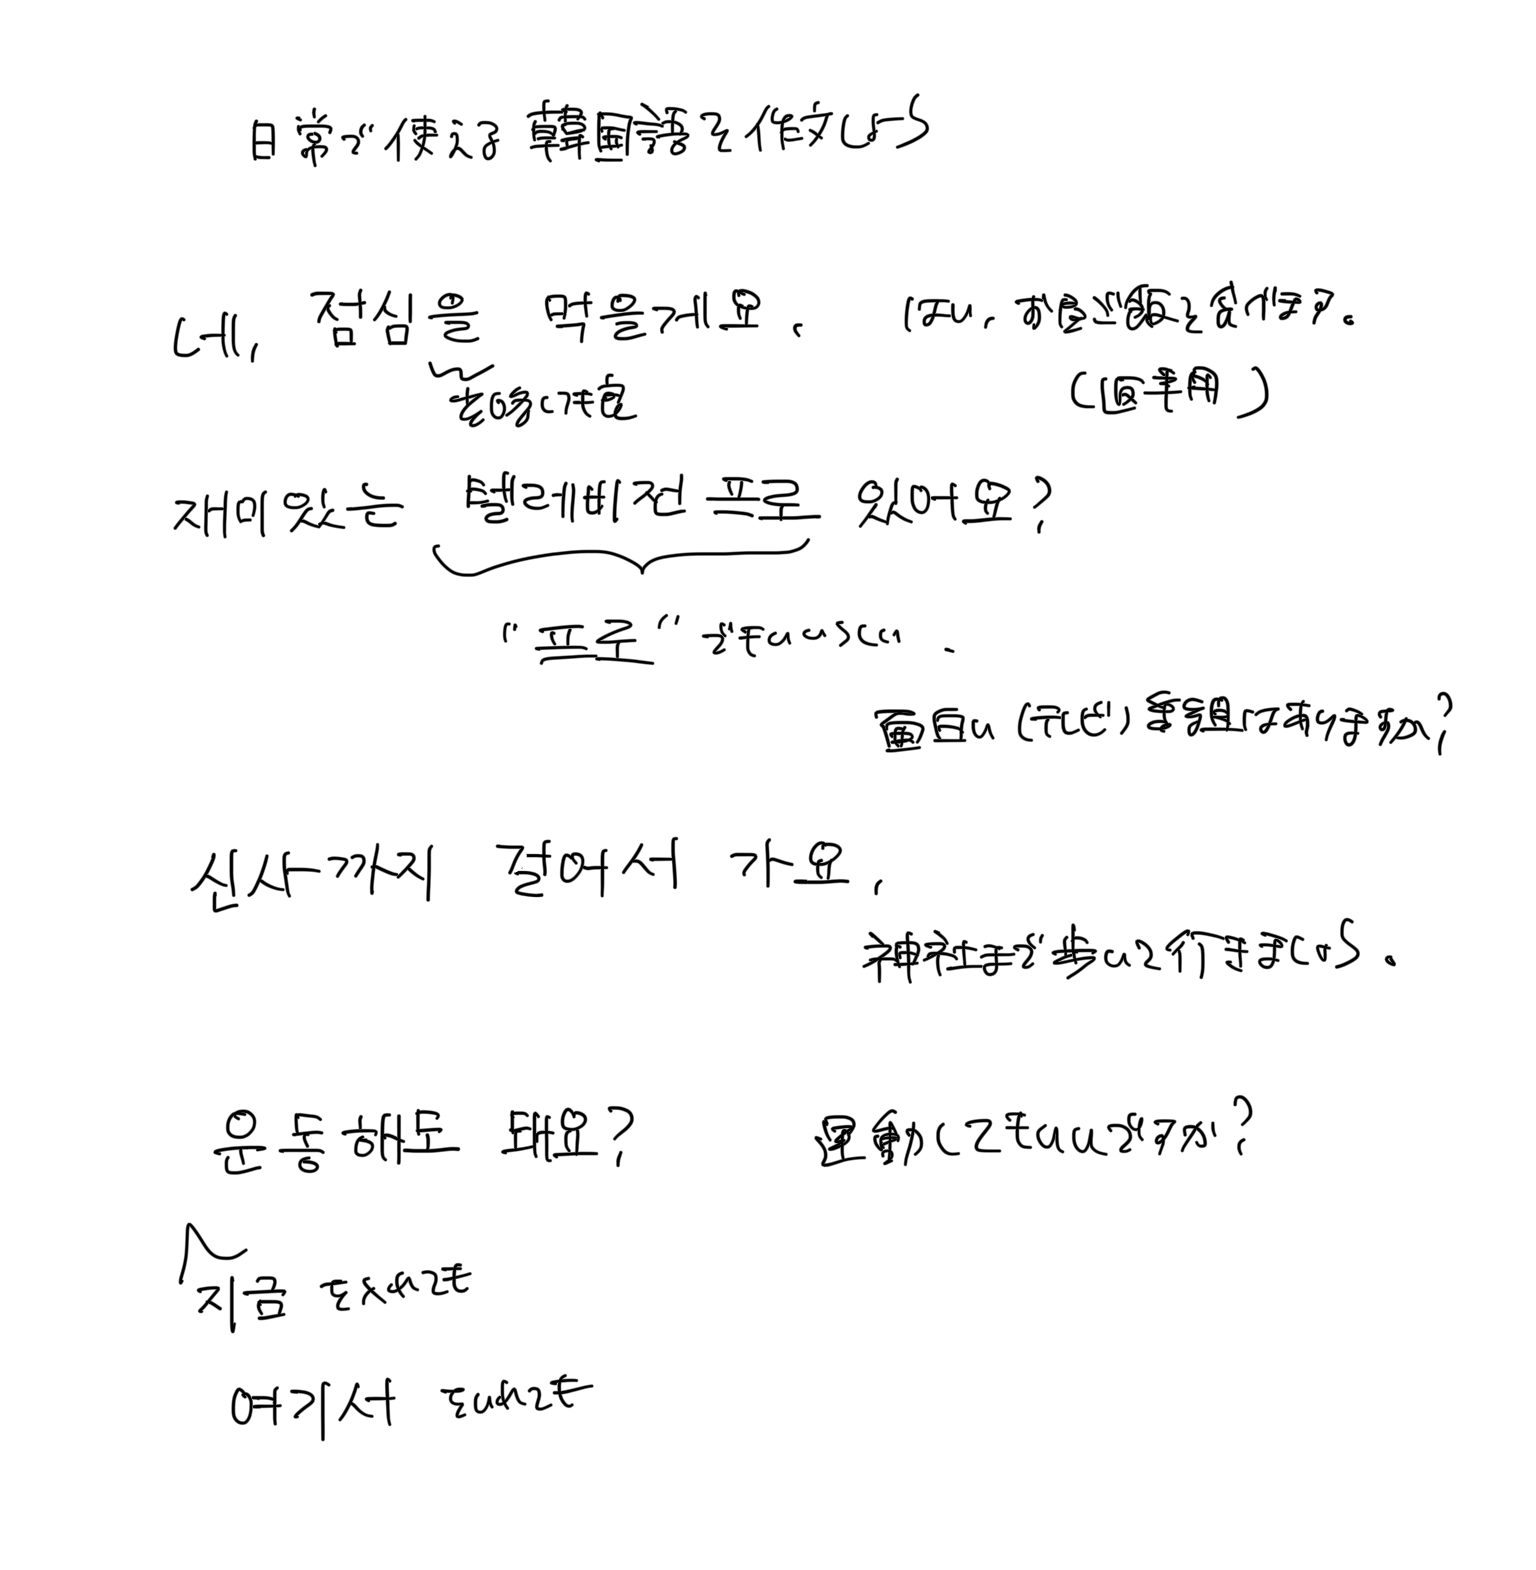 日常で使える韓国語を作文しよう
네, 점심을 먹을게요. はい、お昼ご飯を食べます。
省略しても良 (返事用)
재미있는 텔레비전 프로 있어요?
"프로" でもいいらしい.
面白い (テレビ) 番組はありますか?
신사까지 걸어서 가요.
神社まで歩いて行きましょう。
운동해도 돼요? 運動してもいいですか?
지금 を入れても
여기서 をいれても